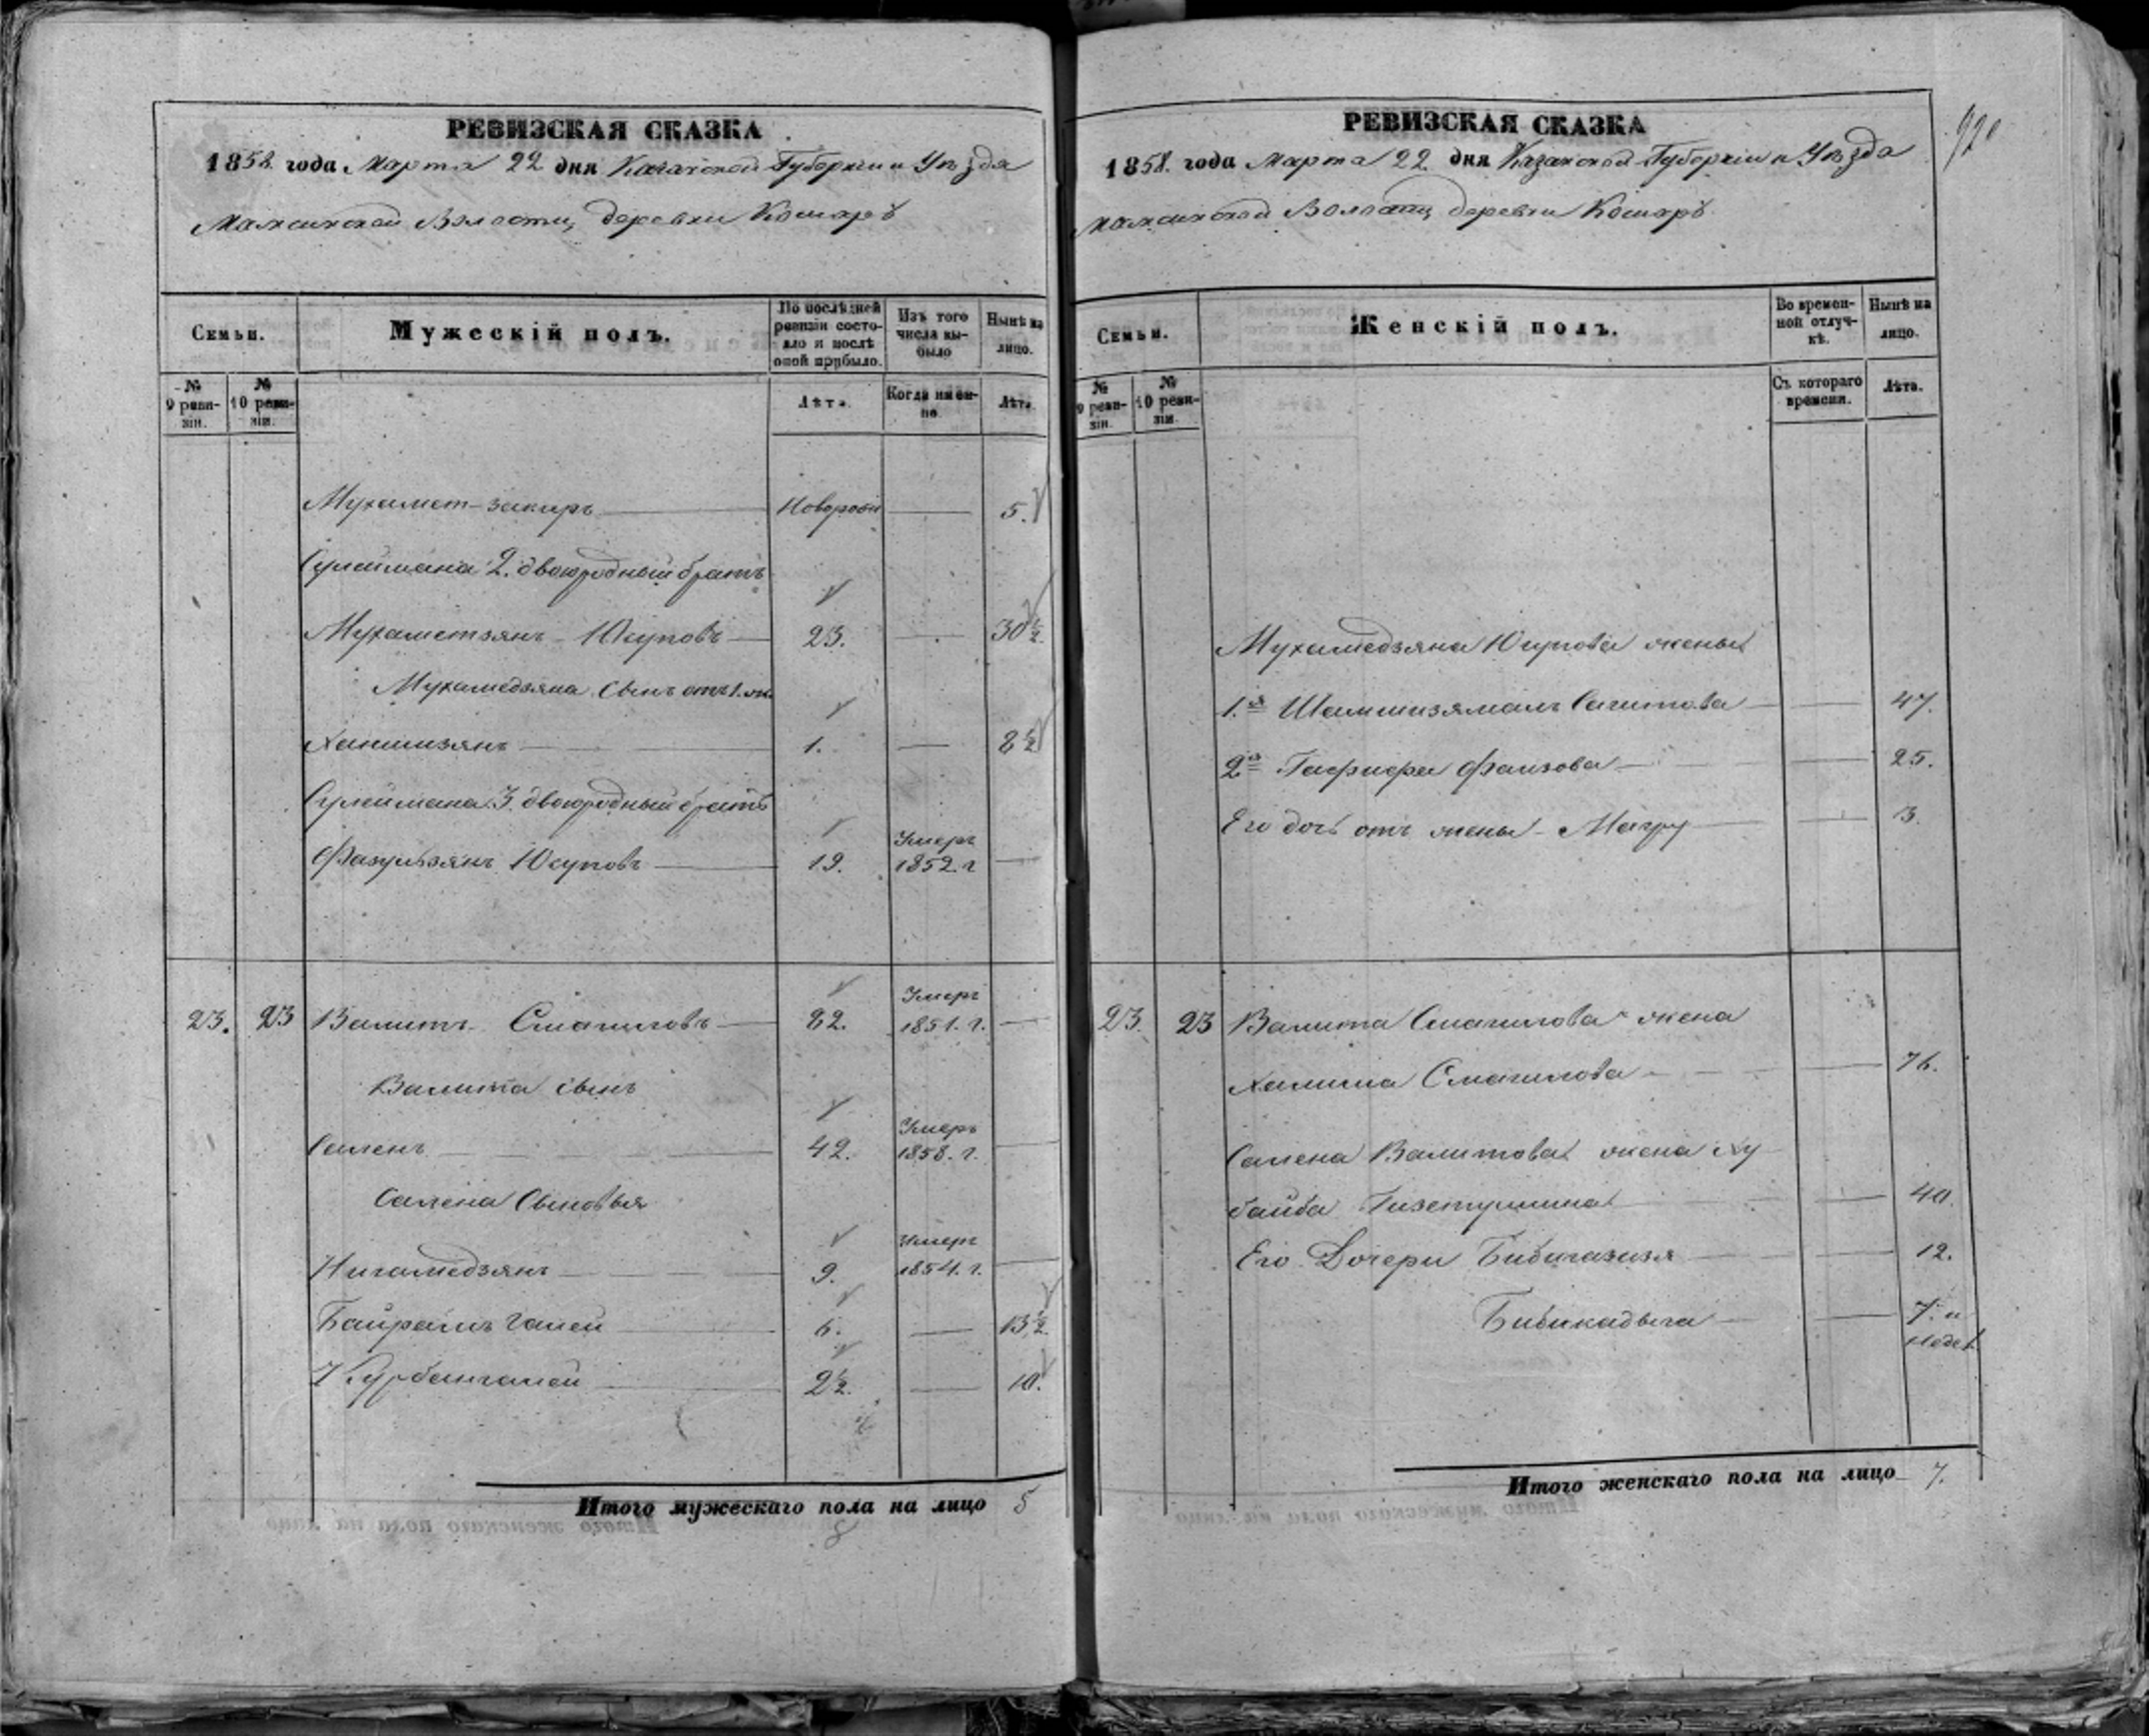 РЕВИЗСКАЯ СКАЗКА
1858. года Марта 22 дня Казанской Губернiи и Уѣзда
Мамсинской Волости, деревни Кошаръ
Семьи.
Мужескій полъ.
По послѣдней ревизіи состояло и послѣ оной прибыло.
Изъ того числа выбыло
Нынѣ на лицо.
№ 9 ревизіи.
№ 10 ревизіи.
Лѣта.
Когда именно.
Лѣта.
Мухамет-закиръ — Новорож — 5.
Сулеймана 2. двоюродный братъ
Мухаметзянъ Юсуповъ — 23. — 30½.
Мухамедзяна сынъ отъ 1. ж.
Ханшизянъ — 1. — 8½
Сулеймана 3. двоюродный братъ
Фазульзянъ Юсуповъ — 19. Умеръ 1852. г —
23. 23 Валитъ Смагиловъ — 82. Умеръ 1851. г. —
Валита сынъ
Саленъ — 42. Умеръ 1858. г. —
Салена Сыновья
Нигамедзянъ — 9. Умеръ 1854. г. —
Байрамъ галей — 6. — 13½.
Курбангалей — 2½. — 10.
Итого мужескаго пола на лицо 5
8
920
РЕВИЗСКАЯ СКАЗКА
1858. года Марта 22 дня Казанской Губернiи и Уѣзда
Мамсинской Волости деревни Кошаръ
Семьи.
Женскій полъ.
Во временной отлучкѣ.
Нынѣ на лицо.
№ 9 ревизіи.
№ 10 ревизіи.
Съ котораго времени.
Лѣта.
Мухамедзяна Юсупова жены
1.я Шамшизямалъ Сагитова — 47.
2я Гафифа Фаизова — 25.
Его дочь отъ жены Магру — 3.
23. 23 Валита Смагилова жена
Халима Смагилова — 76.
Салена Валитова жена Ху
байба Гизетуллина — 40.
Его Дочери Бибигазизя — 12.
Бибикадыча — 7. н
недел
Итого женскаго пола на лицо 7.